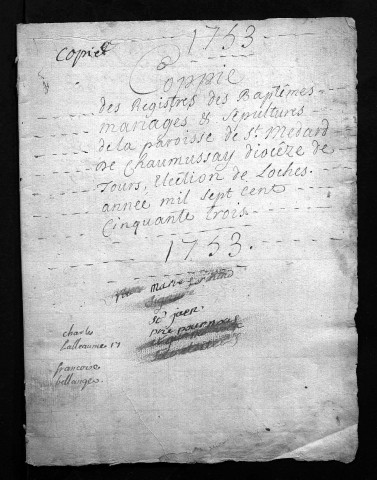 1753.
Copie
Coppie
des Registres des Baptêmes
mariages & sepultures
de la paroisse de St. Medard
de Chaumussay diocèze de
Tours, Election de Loches.
année mil sept cent
Cinquante trois.
1753.
marie
St jaen
charles
lalleaume 17
francoise
bellanger